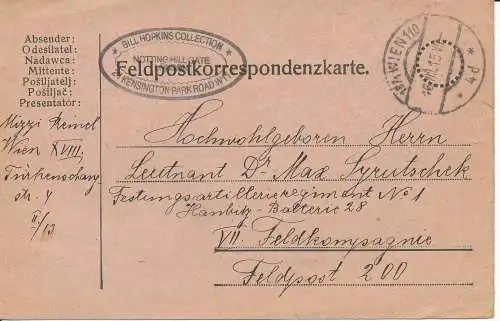 Absender:
Odesílatel:
Nadawca:
Mittente:
Pošiljatelj:
Pošiljač:
Presentator:
* BILL HOPKINS COLLECTION *
NOTTING HILL GATE
KENSINGTON PARK ROAD W
Feldpostkorrespondenzkarte.
WIEN 110
Mizzi
Wien XVIII,
Türkenschanz
str. 4
II/13
Hochwohlgeboren Herrn
Leutnant Dr Max Syrutschek
Festungsartillerieregiment No 1
Haubitz-Batterie 28
VII. Feldkompagnie
Feldpost 200